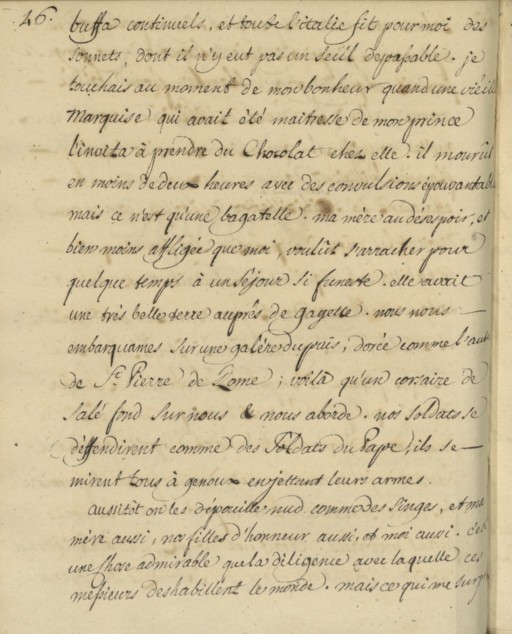 26.
buffa continuels, et toute l'italie fit pour moi des
sonnets, dont il n'y eut pas un seul de passable. je
touchais au moment de mon bonheur quand une vieille
Marquise qui avait été maitresse de mon prince
l'invita à prendre du Chocolat chez elle. il mourût
en moins de deux heures avec des convulsions épouvantables
mais ce n'est qu'une bagatelle. ma mère au désespoir, et
bien moins affligée que moi, voulût s'arracher pour
quelque temps à un séjour si funeste. elle avait
une très belle terre auprés de gayette. nous nous
embarquames sur une galére du pais, dorée comme l'autel
de St. Pierre de Rome; voilà qu'un corsaire de
salé fond sur nous & nous aborde. nos soldats se
déffendirent comme des Soldats du Pape; ils se
mirent tous à genoux en jettant leurs armes.
aussitôt on les dépouille nud comme des singes, et ma
mère aussi, nos filles d'honneur aussi, et moi aussi. c'est
une chose admirable que la diligence avec laquelle ces
messieurs deshabillent le monde. mais ce qui me surp